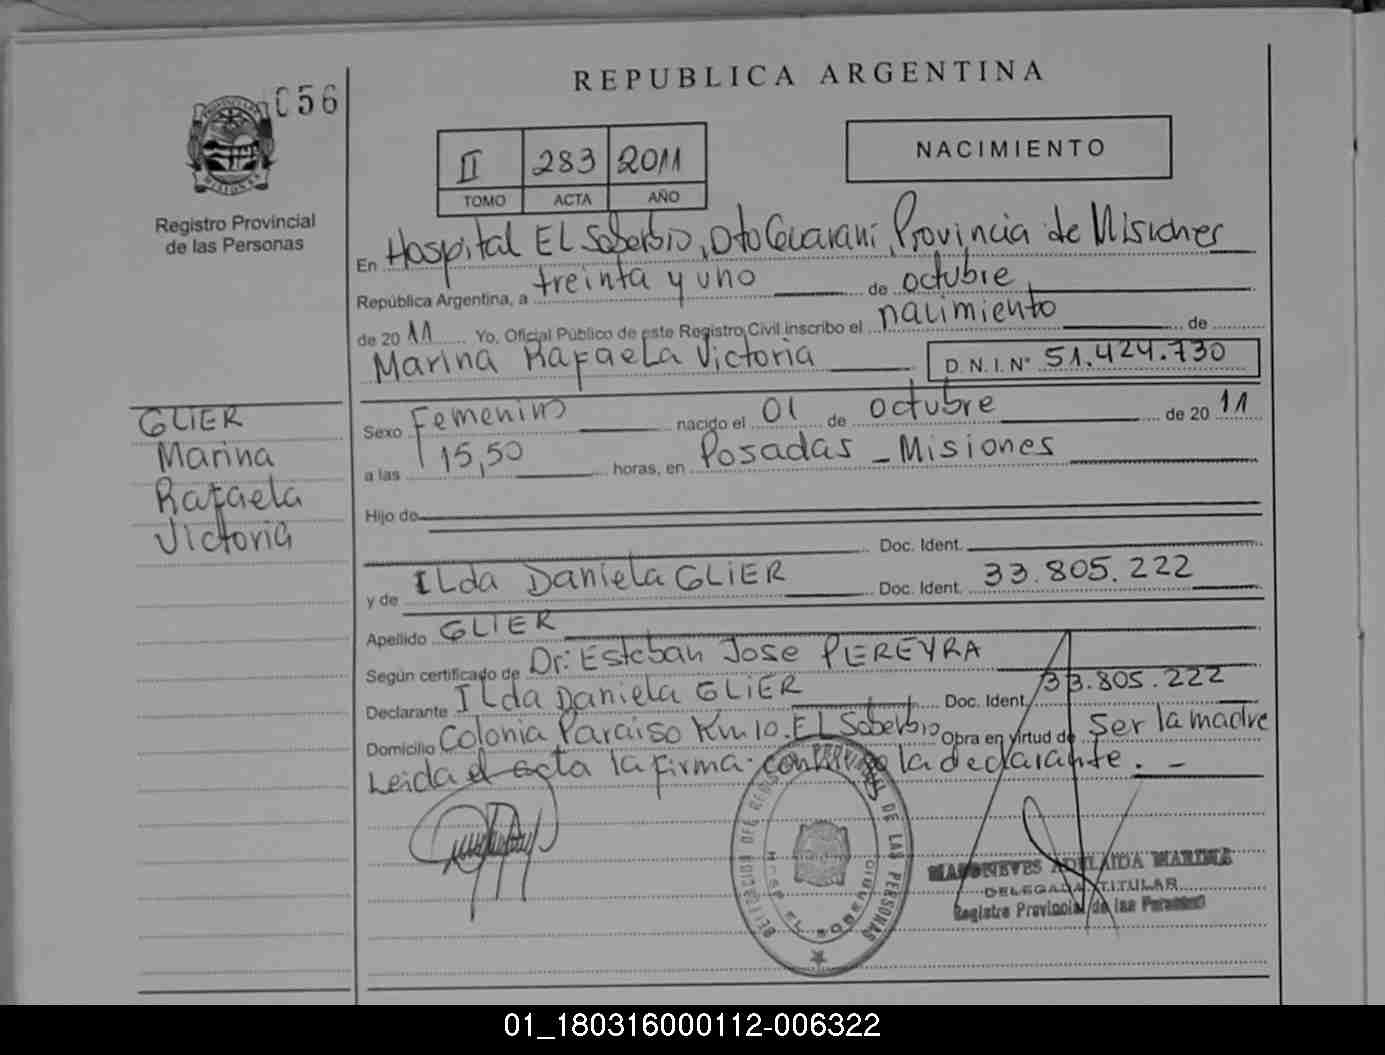 REPUBLICA ARGENTINA
056
II 283 2011
TOMO ACTA AÑO
NACIMIENTO
Registro Provincial
de las Personas
En Hospital EL Soberbio, Dto Guaraní, Provincia de Misiones
República Argentina, a treinta y uno de octubre
de 2011 Yo, Oficial Público de este Registro Civil inscribo el nacimiento de
Marina Rafaela Victoria D.N.I.N° 51.424.730
GLIER
Marina
Rafaela
Victoria
Sexo Femenino nacido el 01 de octubre de 2011
a las 15,50 horas, en Posadas - Misiones
Hijo de
Doc. Ident.
y de ILda Daniela GLIER Doc. Ident. 33.805.222
Apellido GLIER
Según certificado de Dr: Esteban Jose PEREYRA
Declarante ILda Daniela GLIER Doc. Ident. 33.805.222
Domicilio Colonia Paraiso Km 10. EL Soberbio Obra en virtud de Ser la madre
Leida el acta la firma conmigo la declarante. -
DELEGACION DEL REGISTRO PROVINCIAL DE LAS PERSONAS
HOSP. EL SOBERBIO
ADELAIDA MARINA
DELEGADA TITULAR
Registro Provincial de las Personas
01_180316000112-006322